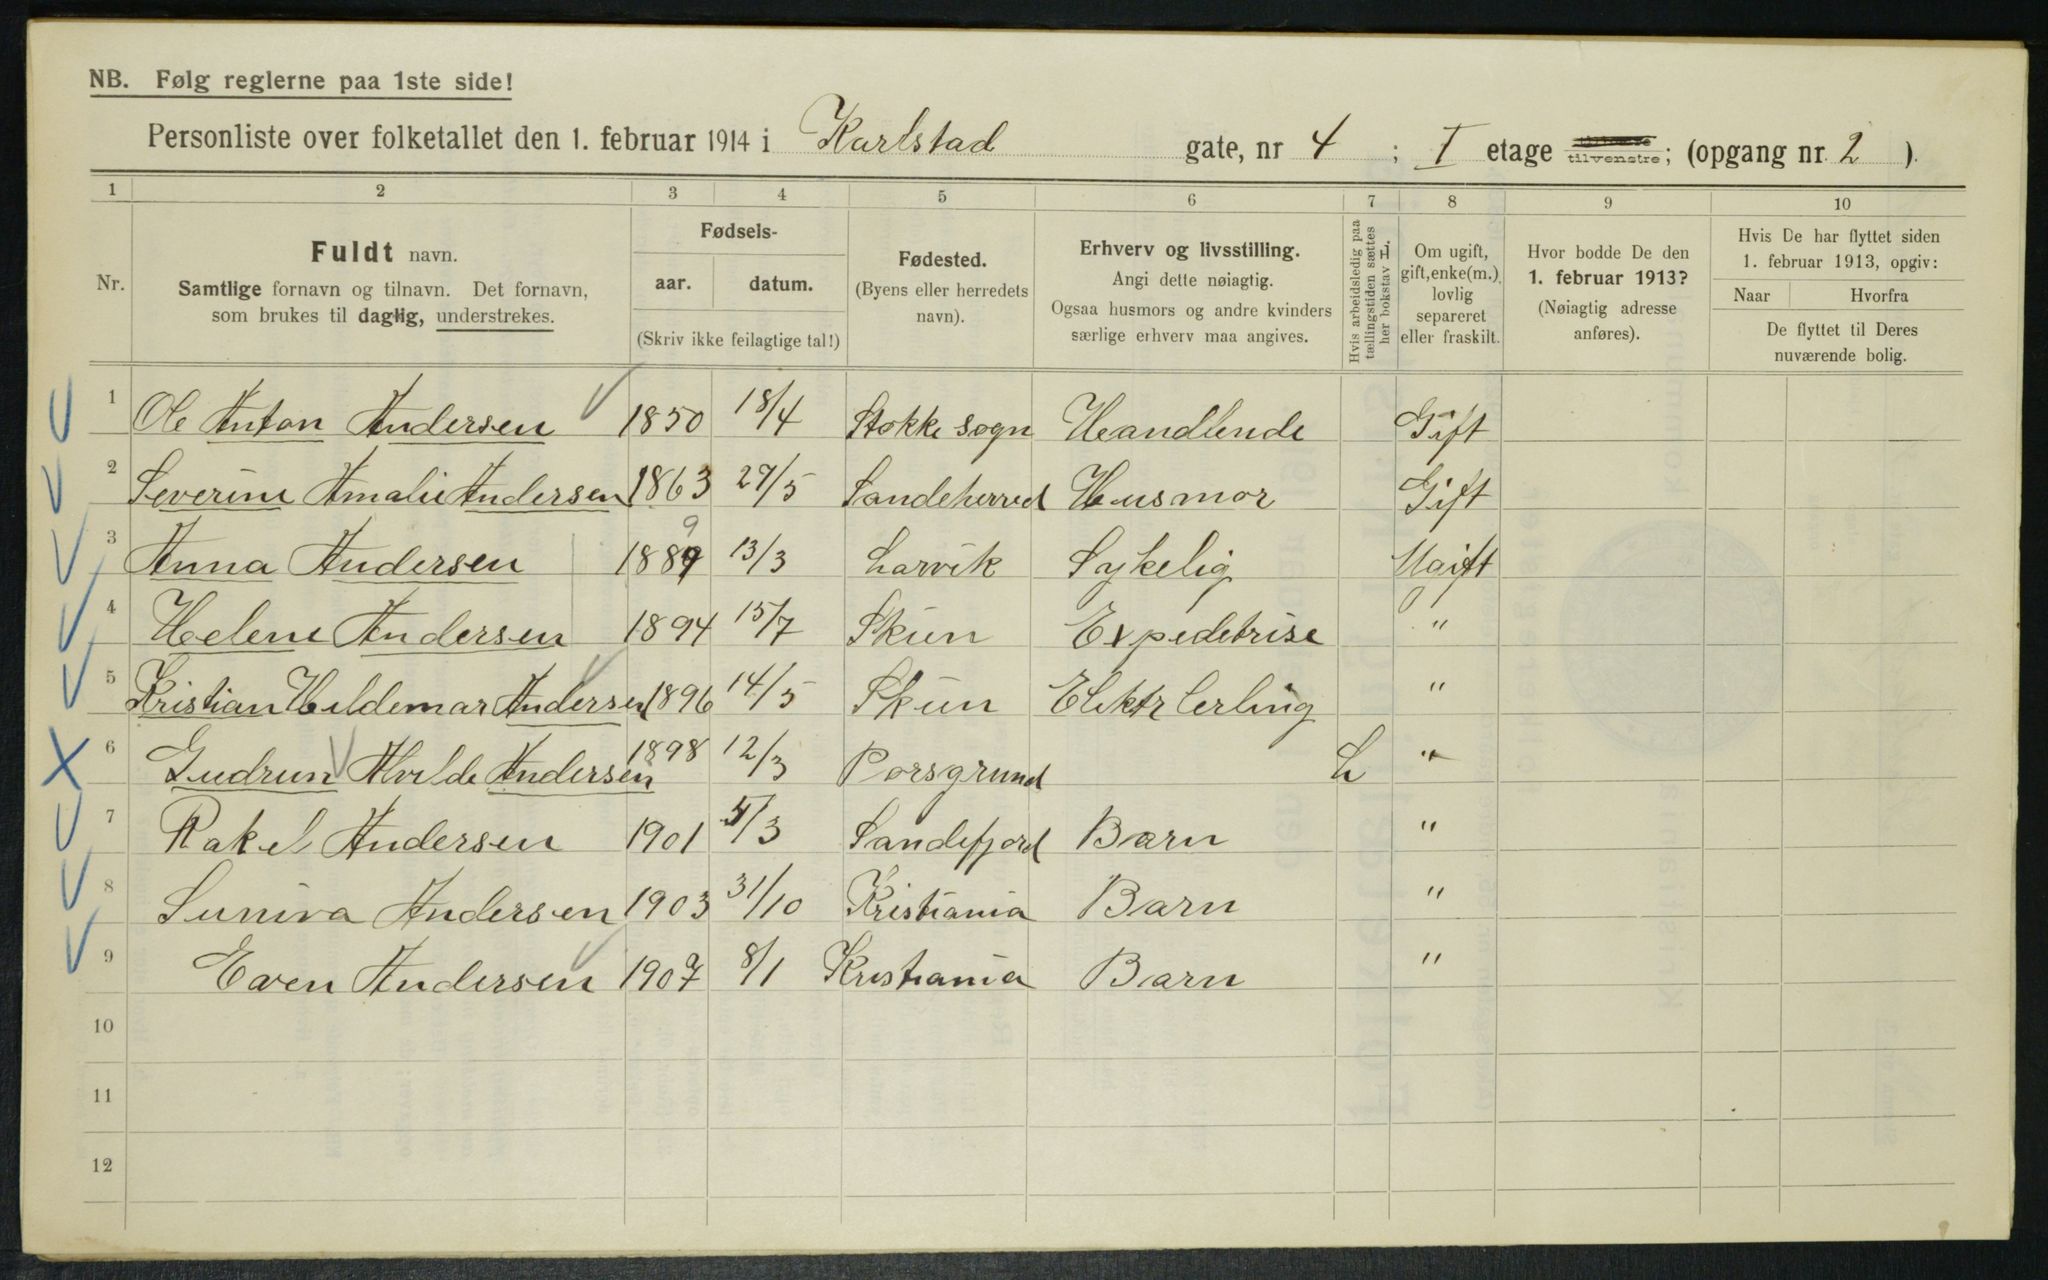 NB. Følg reglerne paa 1ste side!
Personliste over folketallet den 1. februar 1914 i Karlstad gate, nr 4 ; I etage tilvenstre; (opgang nr. 2 ).
1 2 3 4 5 6 7 8 9 10
Nr.
Fuldt navn.
Samtlige fornavn og tilnavn. Det fornavn,
som brukes til daglig, understrekes.
Fødsels-
aar. datum.
(Skriv ikke feilagtige tal!)
Fødested.
(Byens eller herredets
navn).
Erhverv og livsstilling.
Angi dette nøiagtig.
Ogsaa husmors og andre kvinders
særlige erhverv maa angives.
Hvis arbeidsledig paa
tællingstiden sættes
her bokstav L.
Om ugift,
gift, enke(m.),
lovlig
separeret
eller fraskilt.
Hvor bodde De den
1. februar 1913?
(Nøiagtig adresse
anføres).
Hvis De har flyttet siden
1. februar 1913, opgiv:
Naar Hvorfra
De flyttet til Deres
nuværende bolig.
1 Ole Anton Andersen 1850 18/4 Stokke sogn Handlende Gift
2 Severine Amalie Andersen 1863 27/5 Sandeherred Husmor Gift
3 Anna Andersen 1889 9 13/3 Larvik Sykelig Ugift
4 Helene Andersen 1894 15/7 Skiin Expedetrise "
5 Kristian Hildemar Andersen 1896 14/5 Skiin Elektr lerling "
6 Gudrun Alvilde Andersen 1898 12/3 Porsgrund L "
7 Rakel Andersen 1901 5/3 Sandefjord Barn "
8 Suniva Andersen 1903 31/10 Kristiania Barn "
9 Even Andersen 1907 8/1 Kristiania Barn "
10
11
12